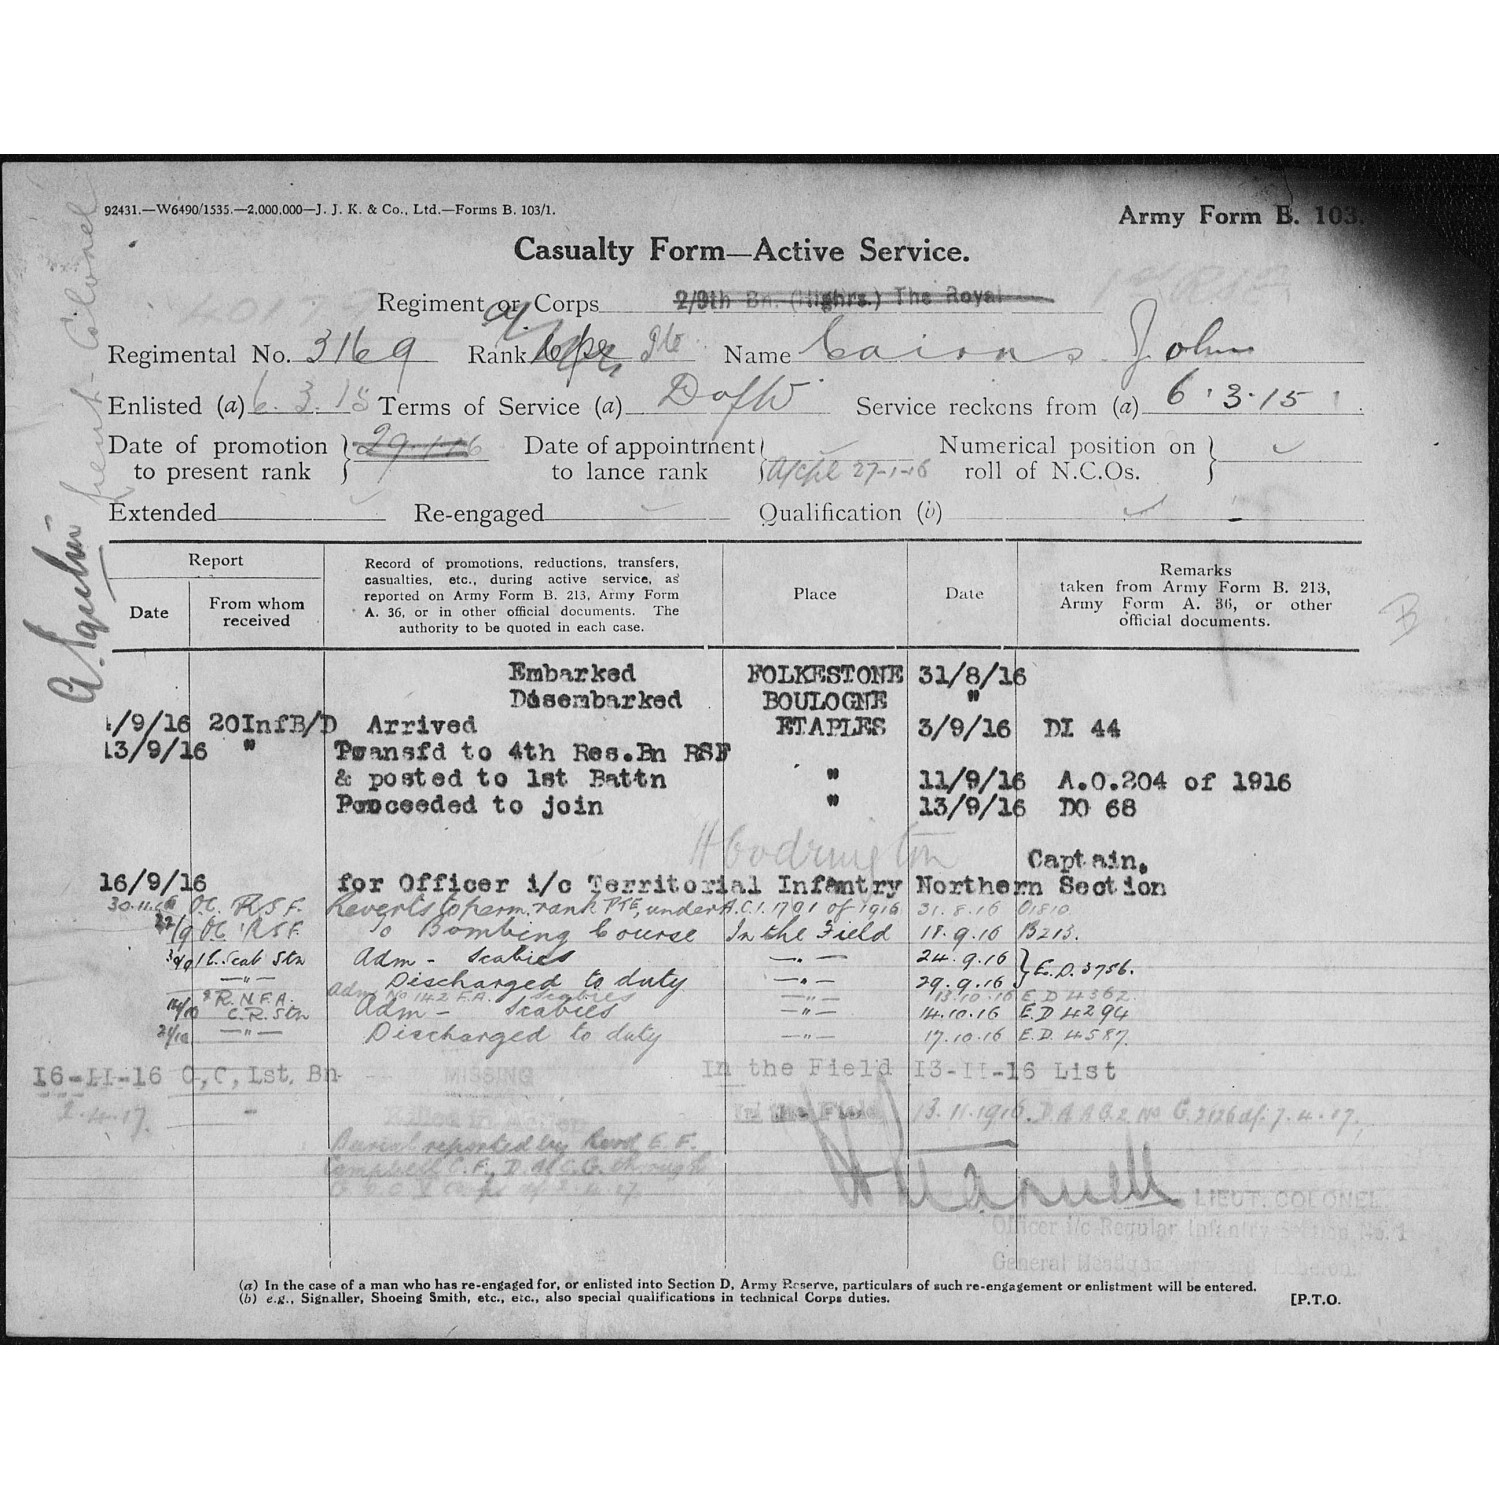 92431.—W6490/1535.—2,000,000—J. J. K. & Co., Ltd.—Forms B. 103/1.
Army Form B. 103.
Casualty Form—Active Service.
Regiment or Corps 2/9th Bn. (Highrs.) The Royal
Regimental No. 3169 Rank Pte Name Cairns John
Enlisted (a) 6.3.15 Terms of Service (a) DofW Service reckons from (a) 6.3.15
Date of promotion to present rank 29.1.16 Date of appointment to lance rank A/Cpl 27-1-16 Numerical position on roll of N.C.Os.
Extended Re-engaged Qualification (b)
Report
Date From whom received Record of promotions, reductions, transfers, casualties, etc., during active service, as reported on Army Form B. 213, Army Form A. 36, or in other official documents. The authority to be quoted in each case. Place Date Remarks taken from Army Form B. 213, Army Form A. 36, or other official documents.
Embarked FOLKESTONE 31/8/16
Disembarked BOULOGNE "
/9/16 20InfB/D Arrived ETAPLES 3/9/16 DI 44
13/9/16 " Transfd to 4th Res.Bn RSF
& posted to 1st Battn " 11/9/16 A.O.204 of 1916
Proceeded to join " 13/9/16 DO 68
Captain,
16/9/16 for Officer i/c Territorial Infantry Northern Section
30.11.16 O.C. R.S.F. Reverts to perm. rank Pte, under A.C.I. 1791 of 1916 31.8.16 O1810
22/9 OC RSF. To Bombing Course In the Field 18.9.16 B213.
Scab Stn Adm - Scabies —"— 24.9.16
—"— Discharged to duty —"— 29.9.16 E.D.3756.
R.N.F.A. Adm No 142 F.A. Scabies —"— 13.10.16 E.D 4362
14/10 C.R.Stn Adm - Scabies —"— 14.10.16 E.D 4294
21/10 —"— Discharged to duty —"— 17.10.16 E.D. 4587.
16-11-16 O,C, 1st. Bn MISSING In the Field 13-11-16 List
.4.17. Killed in Action In the Field 13.11.1916.
Burial reported by Revd E. F.
Campbell C.F., through
LIEUT. COLONEL.
Officer i/c Regular Infantry Section No. 1
General
(a) In the case of a man who has re-engaged for, or enlisted into Section D, Army Reserve, particulars of such re-engagement or enlistment will be entered.
(b) e.g., Signaller, Shoeing Smith, etc., etc., also special qualifications in technical Corps duties.
[P.T.O.